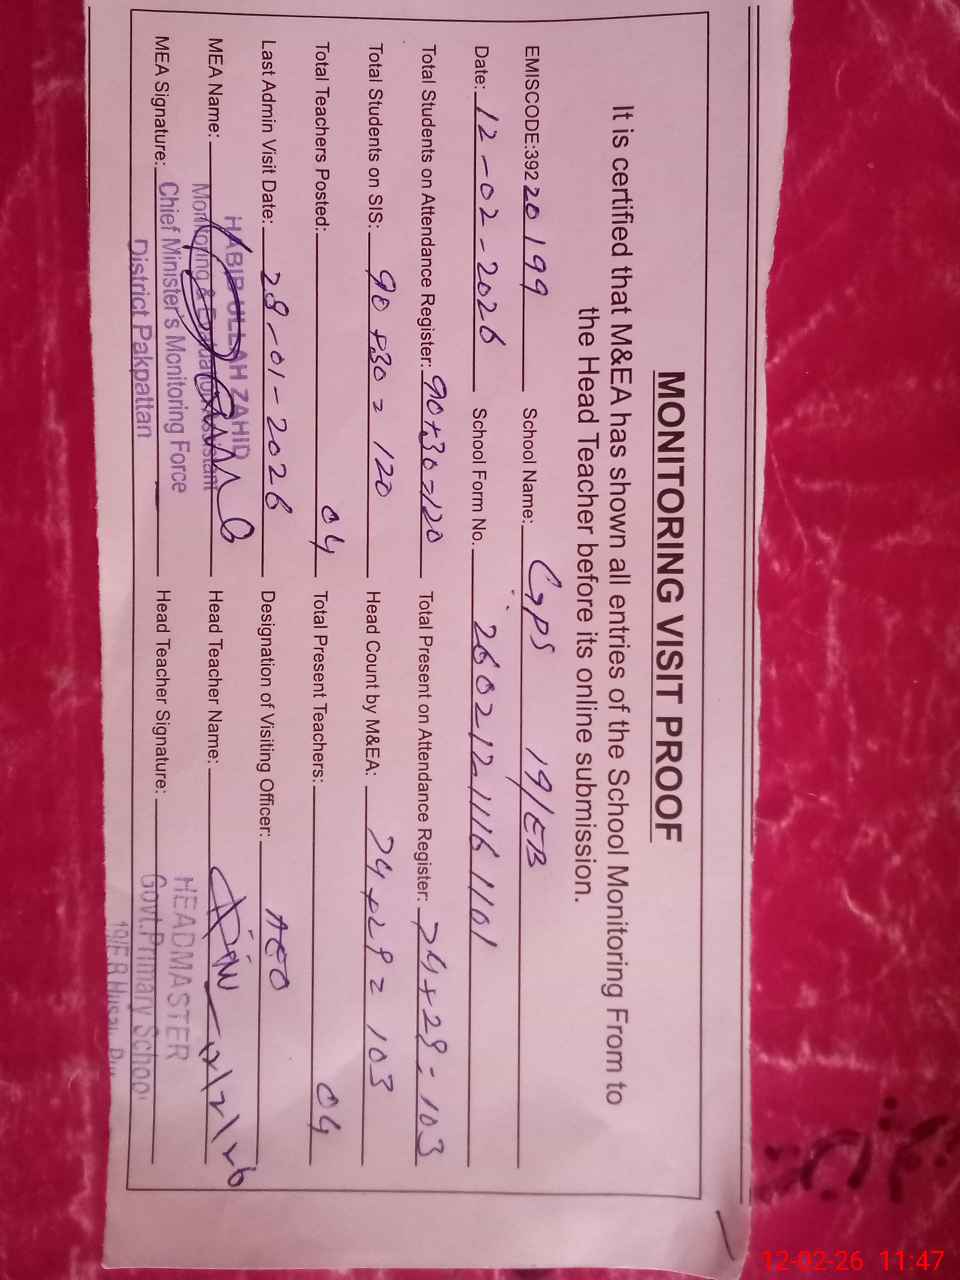 MONITORING VISIT PROOF
It is certified that M&EA has shown all entries of the School Monitoring From to
the Head Teacher before its online submission.
EMISCODE:392 20199 School Name: GPS 19/EB
Date: 12-02-2026 School Form No. 260212111611101
Total Students on Attendance Register: 90+30=120 Total Present on Attendance Register: 74+29=103
Total Students on SIS: 90+30=120 Head Count by M&EA: 74+29=103
Total Teachers Posted: 04 Total Present Teachers: 04
Last Admin Visit Date: 28-01-2026 Designation of Visiting Officer: AEO
MEA Name: Head Teacher Name: 12/2/26
MEA Signature: Head Teacher Signature:
HABIB ULLAH ZAHID
Monitoring & Assistant
Chief Minister's Monitoring Force
District Pakpattan
HEADMASTER
Govt.Primary School
19/EB
12-02-26 11:47